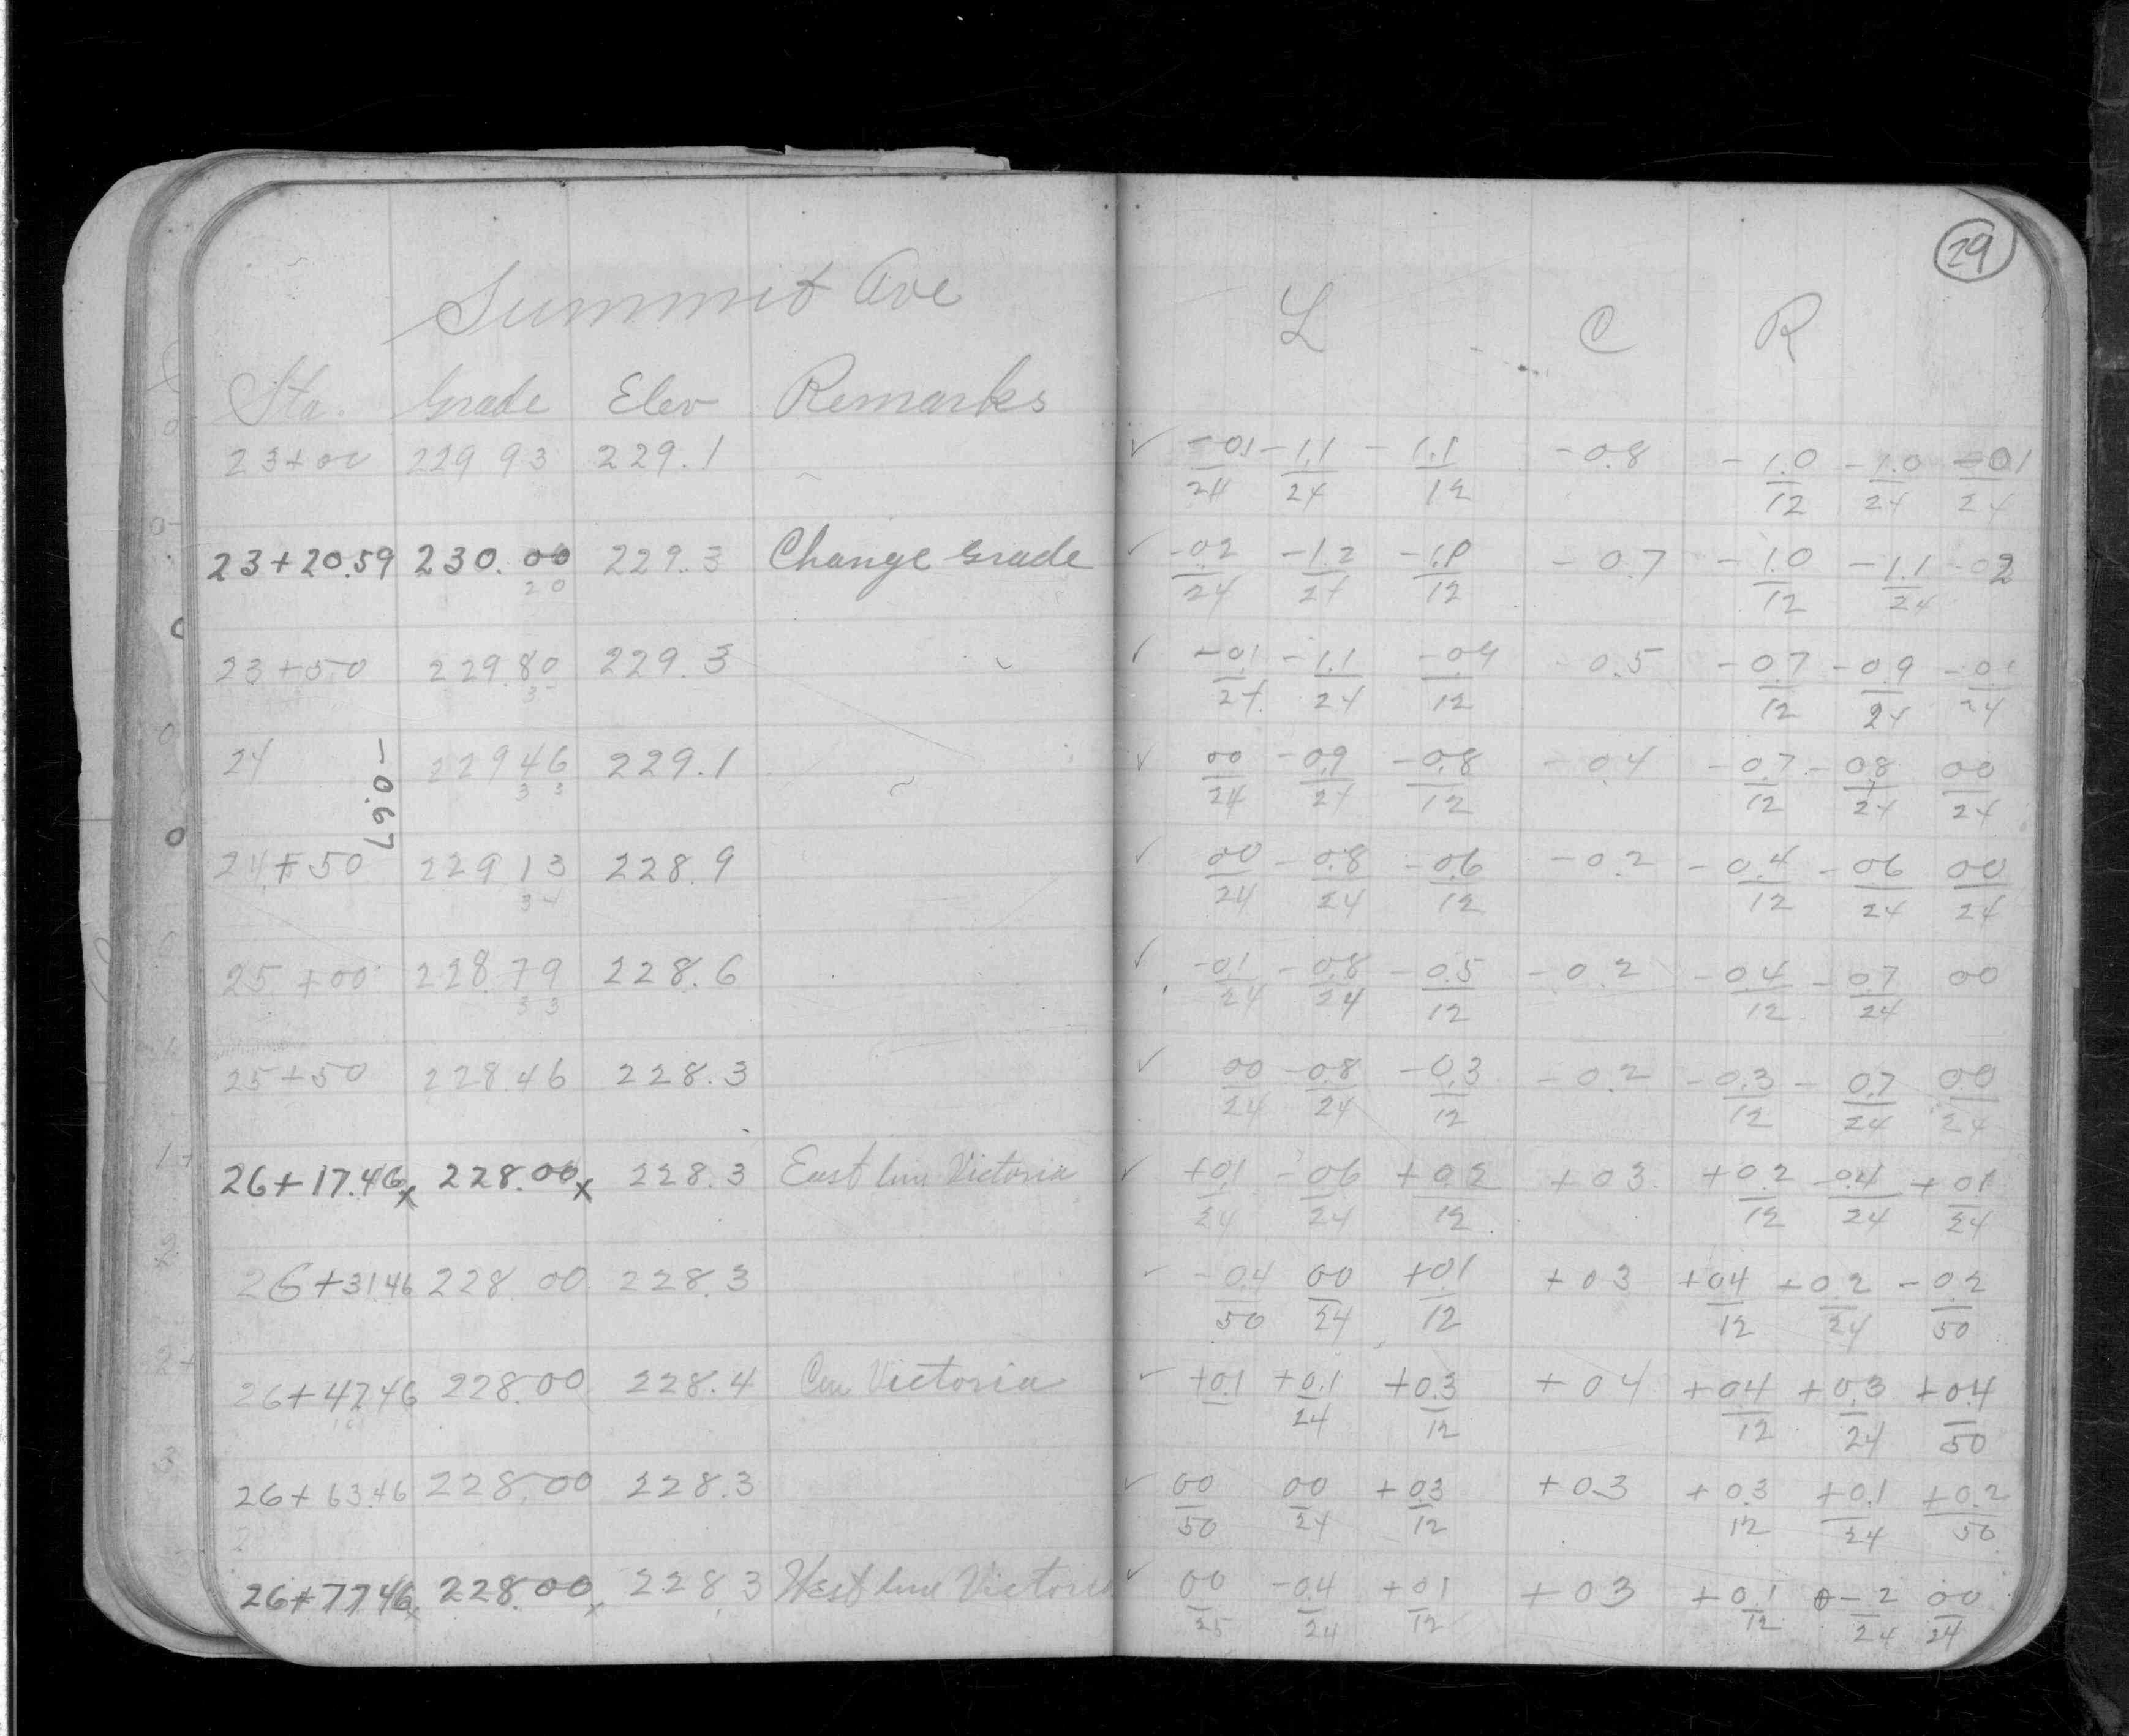 29
Summit Ave
L C R
Sta. Grade Elev Remarks
23+00 229 93 229.1 ✓ -0.1/24 -1.1/24 -1.1/12 -0.8 -1.0/12 -1.0/24 -0.1/24
23+20.59 230.00 229.3 Change Grade ✓ -0.2/24 -1.2/24 -1.0/12 -0.7 -1.0/12 -1.1/24 -02
20
23+50 229.80 229.3 ✓ -0.1/24 -1.1/24 -0.9/12 -0.5 -0.7/12 -0.9/24 -0.1/24
24 229 46 229.1 ✓ 00/24 -0.9/24 -0.8/12 -0.4 -0.7/12 -0.8/24 00/24
3 3
-0.67
24+50 229 13 228.9 ✓ 00/24 -0.8/24 -0.6/12 -0.2 -0.4/12 -06/24 00/24
25+00 228 79 228.6 ✓ -0.1/24 -0.8/24 -0.5/12 -0.2 -0.4/12 -0.7/24 00
3 3
25+50 228.46 228.3 ✓ 00/24 -0.8/24 -0.3/12 -0.2 -0.3/12 -0.7/24 0.0/24
26+17.46x 228.00x 228.3 East line Victoria ✓ +0.1/24 -06/24 +0.2/12 +03 +0.2/12 -0.4/24 +01/24
26+3146 228 00 228.3 -0.4/50 00/24 +0.1/12 +03 +04/12 +0.2/24 -0.2/50
26+4746 228.00 228.4 Cen Victoria +0.1 +0.1/24 +0.3/12 +04 +04/12 +0.3/24 +0.4/50
26+63.46 228.00 228.3 ✓ 00/50 00/24 +03/12 +0.3 +0.3/12 +0.1/24 +0.2/50
26+7746x 228.00x 228.3 West line Victoria ✓ 00/25 -0.4/24 +0.1/12 +03 +0.1/12 0-2/24 00/24